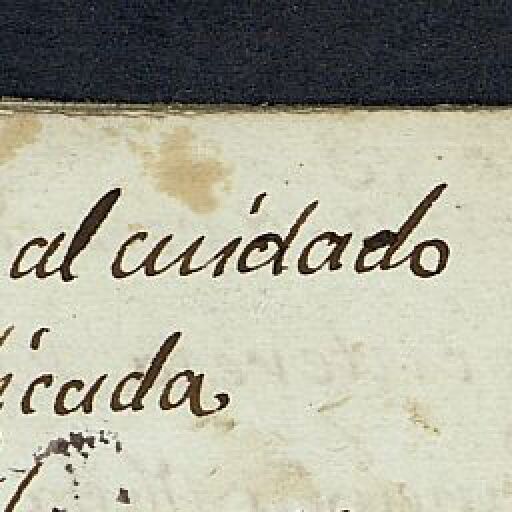 al cuidado
icada